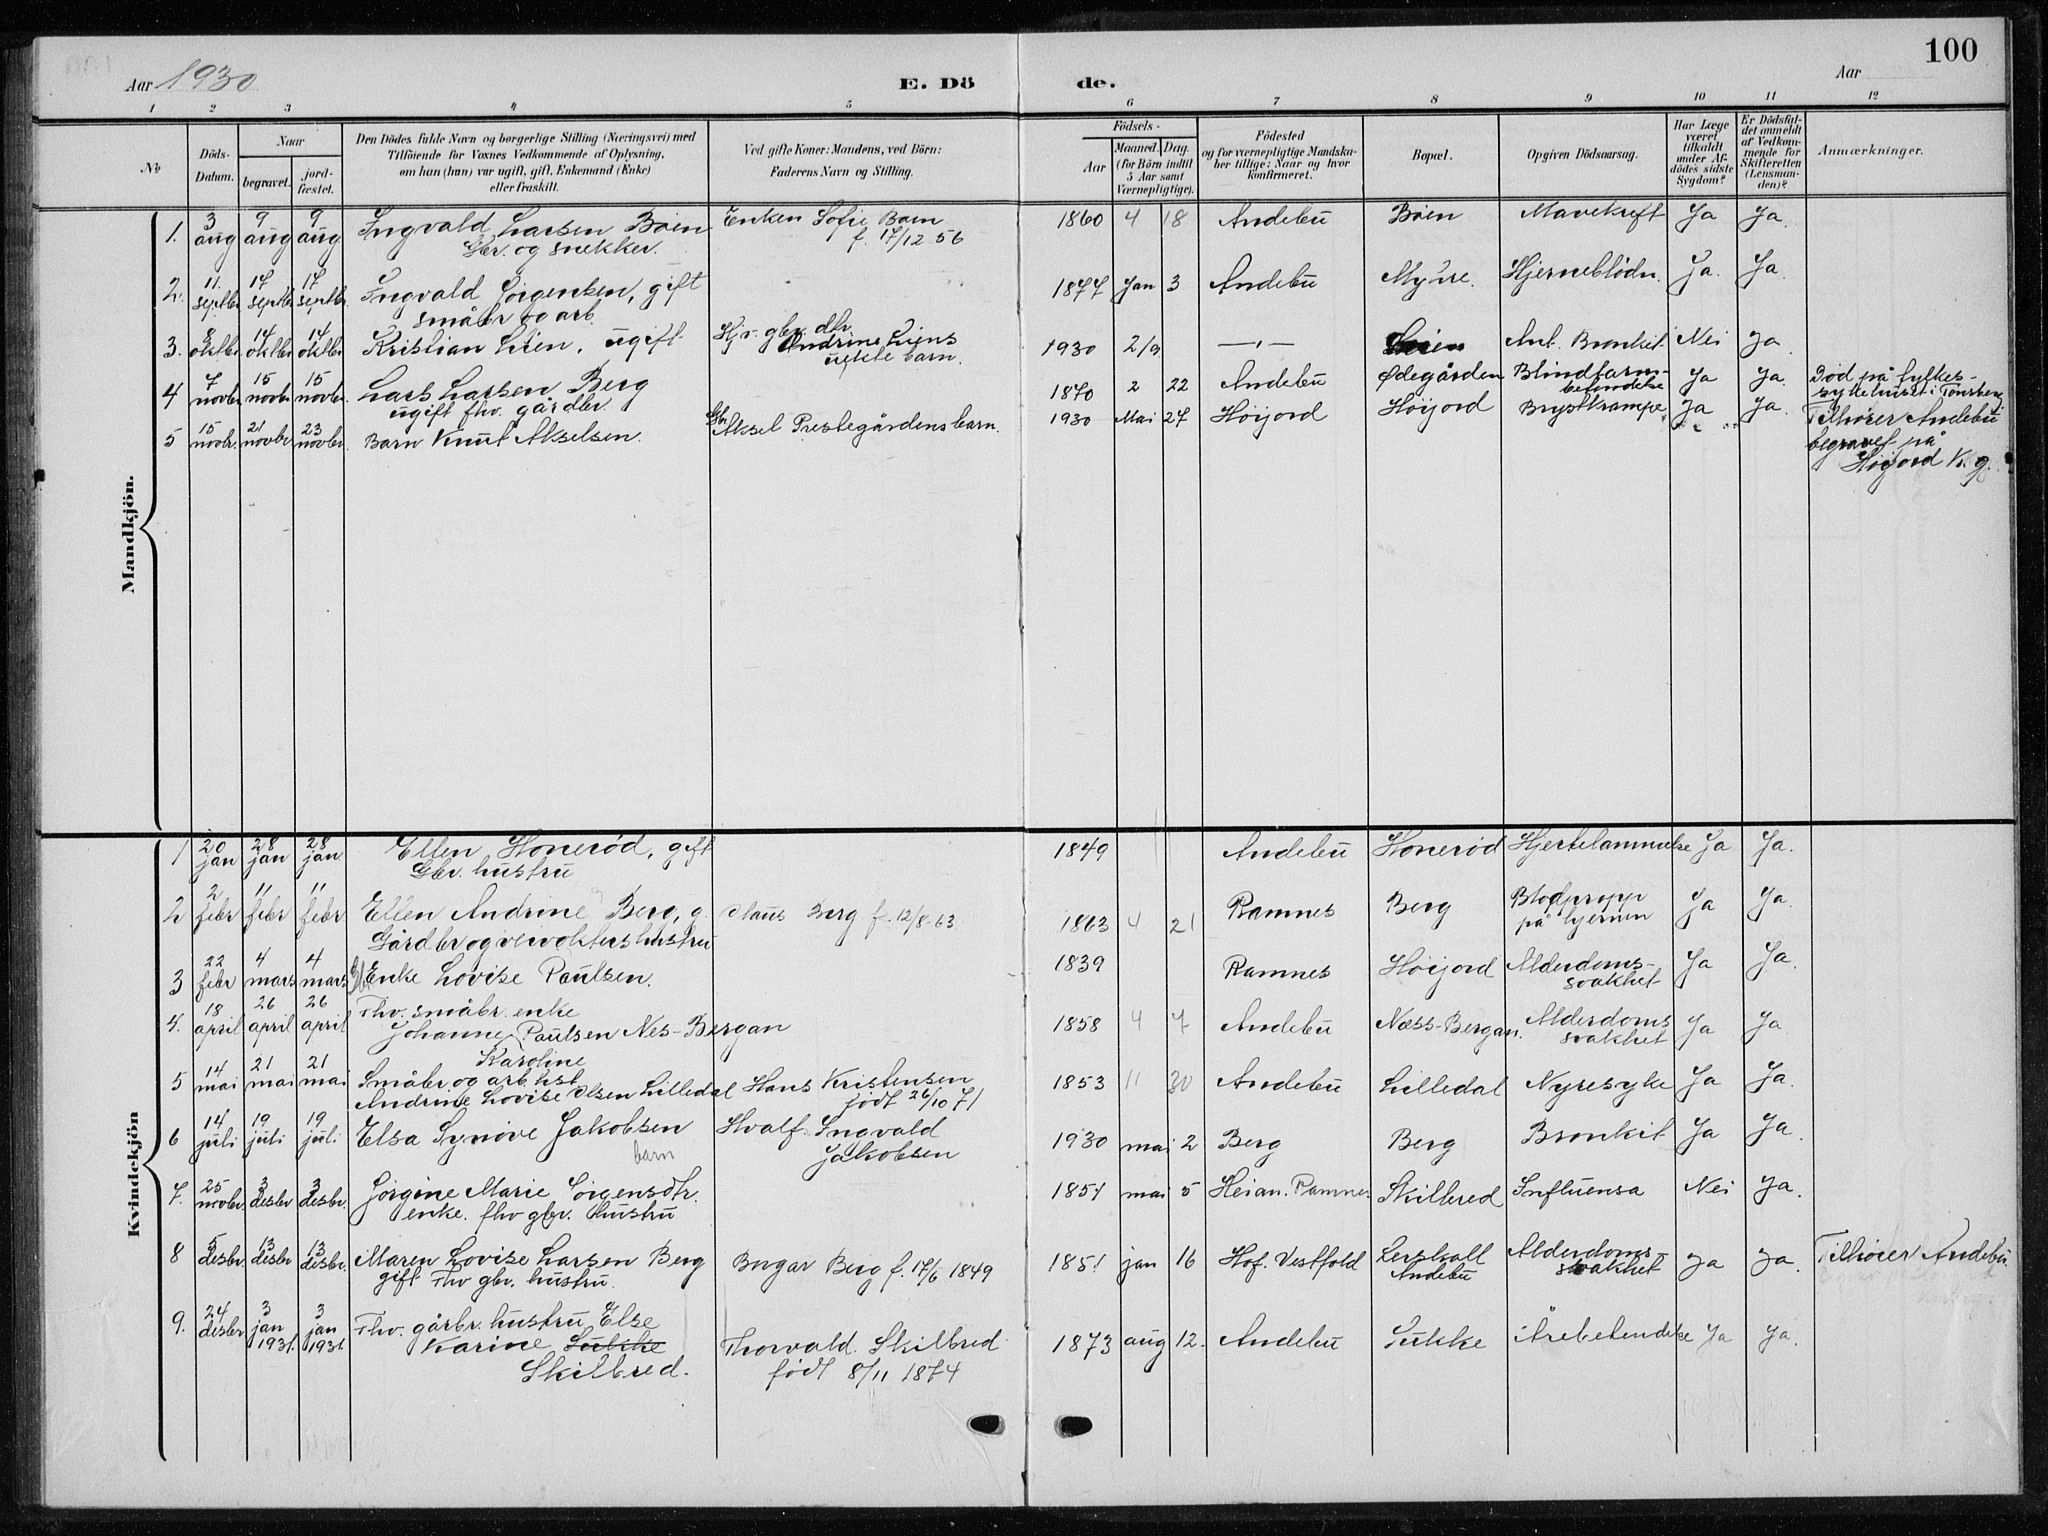 100
Aar 1930
E. Dö
de.
Aar
1 2 3 4 5 6 7 8 9 10 11 12
No
Döds-Datum.
Naar
begravet.
jord-fæstet.
Den Dödes fulde Navn og borgerlige Stilling (Næringsvei) med
Tilföiende for Voxnes Vedkommende af Oplysning,
om han (hun) var ugift, gift, Enkemand (Enke)
eller fraskilt.
Ved gifte Koner: Mandens, ved Börn:
Faderens Navn og Stilling.
Födsels-
Aar
Maaned. Dag.
(for Börn indtil
5 Aar samt
Værnepligtige).
Födested
og for værnepligtige Mandska-
ber tillige: Naar og hvor
konfirmeret.
Bopæl.
Opgiven Dödsaarsag.
Har Læge
været
tilkaldt
under Af-
dödes sidste
Sygdom?
Er Dödsfal-
det anmeldt
af Vedkom-
mende for
Skifteretten
(Lensman-
den)?
Anmærkninger.
Mandkjön.
1. 3 aug 9 aug 9 aug Ingvald Larsen Böen Enken Sofie Baen 1860 4 18 Andebu Böen Mavekreft Ja Ja.
Gbr. og snekker. f. 17/12 56
2. 11. septbr 17 septbr 17 septbr. Ingvald Jörgensen, gift 1877 Jan 3 Andebu Myhre. Hjerneblödn. Ja. Ja.
småbr og arb.
3. 8 oktbr. 14 oktbr. 14 oktbr. Kristian Lien, ugift Hj.v. gbr. dtr. Andrine Liens 1930 2/9 —"— Lien Ant. Bronkit Nei Ja
uekte barn.
4 7 novbr. 15 novbr. 15 novbr. Lars Larsen Berg 1870 2 22 Andebu Ødegården Blindtarms-betendelse Ja Ja. Död på fylkes-
ugift fhv. gårdbr. sykehuset i Tönsberg
5 15 novbr. 21 novbr 23 novbr. Barn Knut Akselsen. Gbr. Aksel Prestegårdens barn. 1930 Mai 27 Höijord Höijord Brystkrampe Ja Ja. Tilhörer Andebu
begravet på
Höijord K.g.
Kvindekjön
1 20 jan 28 jan 28 jan Ellen Honeröd, gift 1849 Andebu Honeröd Hjertelammelse Ja Ja.
Gbr. hustru
2 2 febr 11 febr 11 febr Ellen Andrine Berg, g. Claus Berg f. 12/8-63 1863 4 21 Ramnes Berg Blodpropp på hjernen Ja Ja.
Gårdbr og veivokters hustru
3 22 febr 4 mars 4 mars Enke Lovise Paulsen. 1839 Ramnes Höijord Alderdoms-svakhet Ja Ja.
4. 18 april 26 april 26 april Fhv. småbr. enke
Johanne Paulsen Nes-Bergan 1858 4 7 Andebu Næss-Bergan. Alderdoms svakhet Ja Ja.
Karoline
5 14 mai 21 mai 21 mai Småbr og arb. hst
Andrine Lovise Olsen Lilledal Hans Kristensen 1853 11 30 Andebu Lilledal Nyresyke Ja Ja.
födt 26/10 71
6 14 juli 19 juli 19 juli Elsa Synöve Jakobsen Hvalf. Ingvald 1930 mai 2 Berg Berg Bronkit Ja Ja.
barn Jakobsen
7. 25 novbr. 3 desbr 3 desbr. Jörgine Marie Jörgensdtr. 1851 mai 5 Heian. Ramnes Skilbred Influensa Nei Ja.
enke. fhv gbr. hustru
8 5 desbr. 13 desbr 13 desbr. Maren Lovise Larsen Berg Borgar Berg f. 17/6 1849 1851 jan 16 Hof. Vestfold Lerskall Andebu Alderdoms svakhet Ja Ja. Tilhörer Andebu.
gift Fhv gbr. hustru.
9. 24 desbr 3 jan 1931. 3 jan 1931. Fhv. gårbr. hustru Else
Karine Sukke Thorvald. Skilbred 1873 aug 12. Andebu Sukke Årebetendelse Ja Ja.
Skilbred. födt 8/11 1874